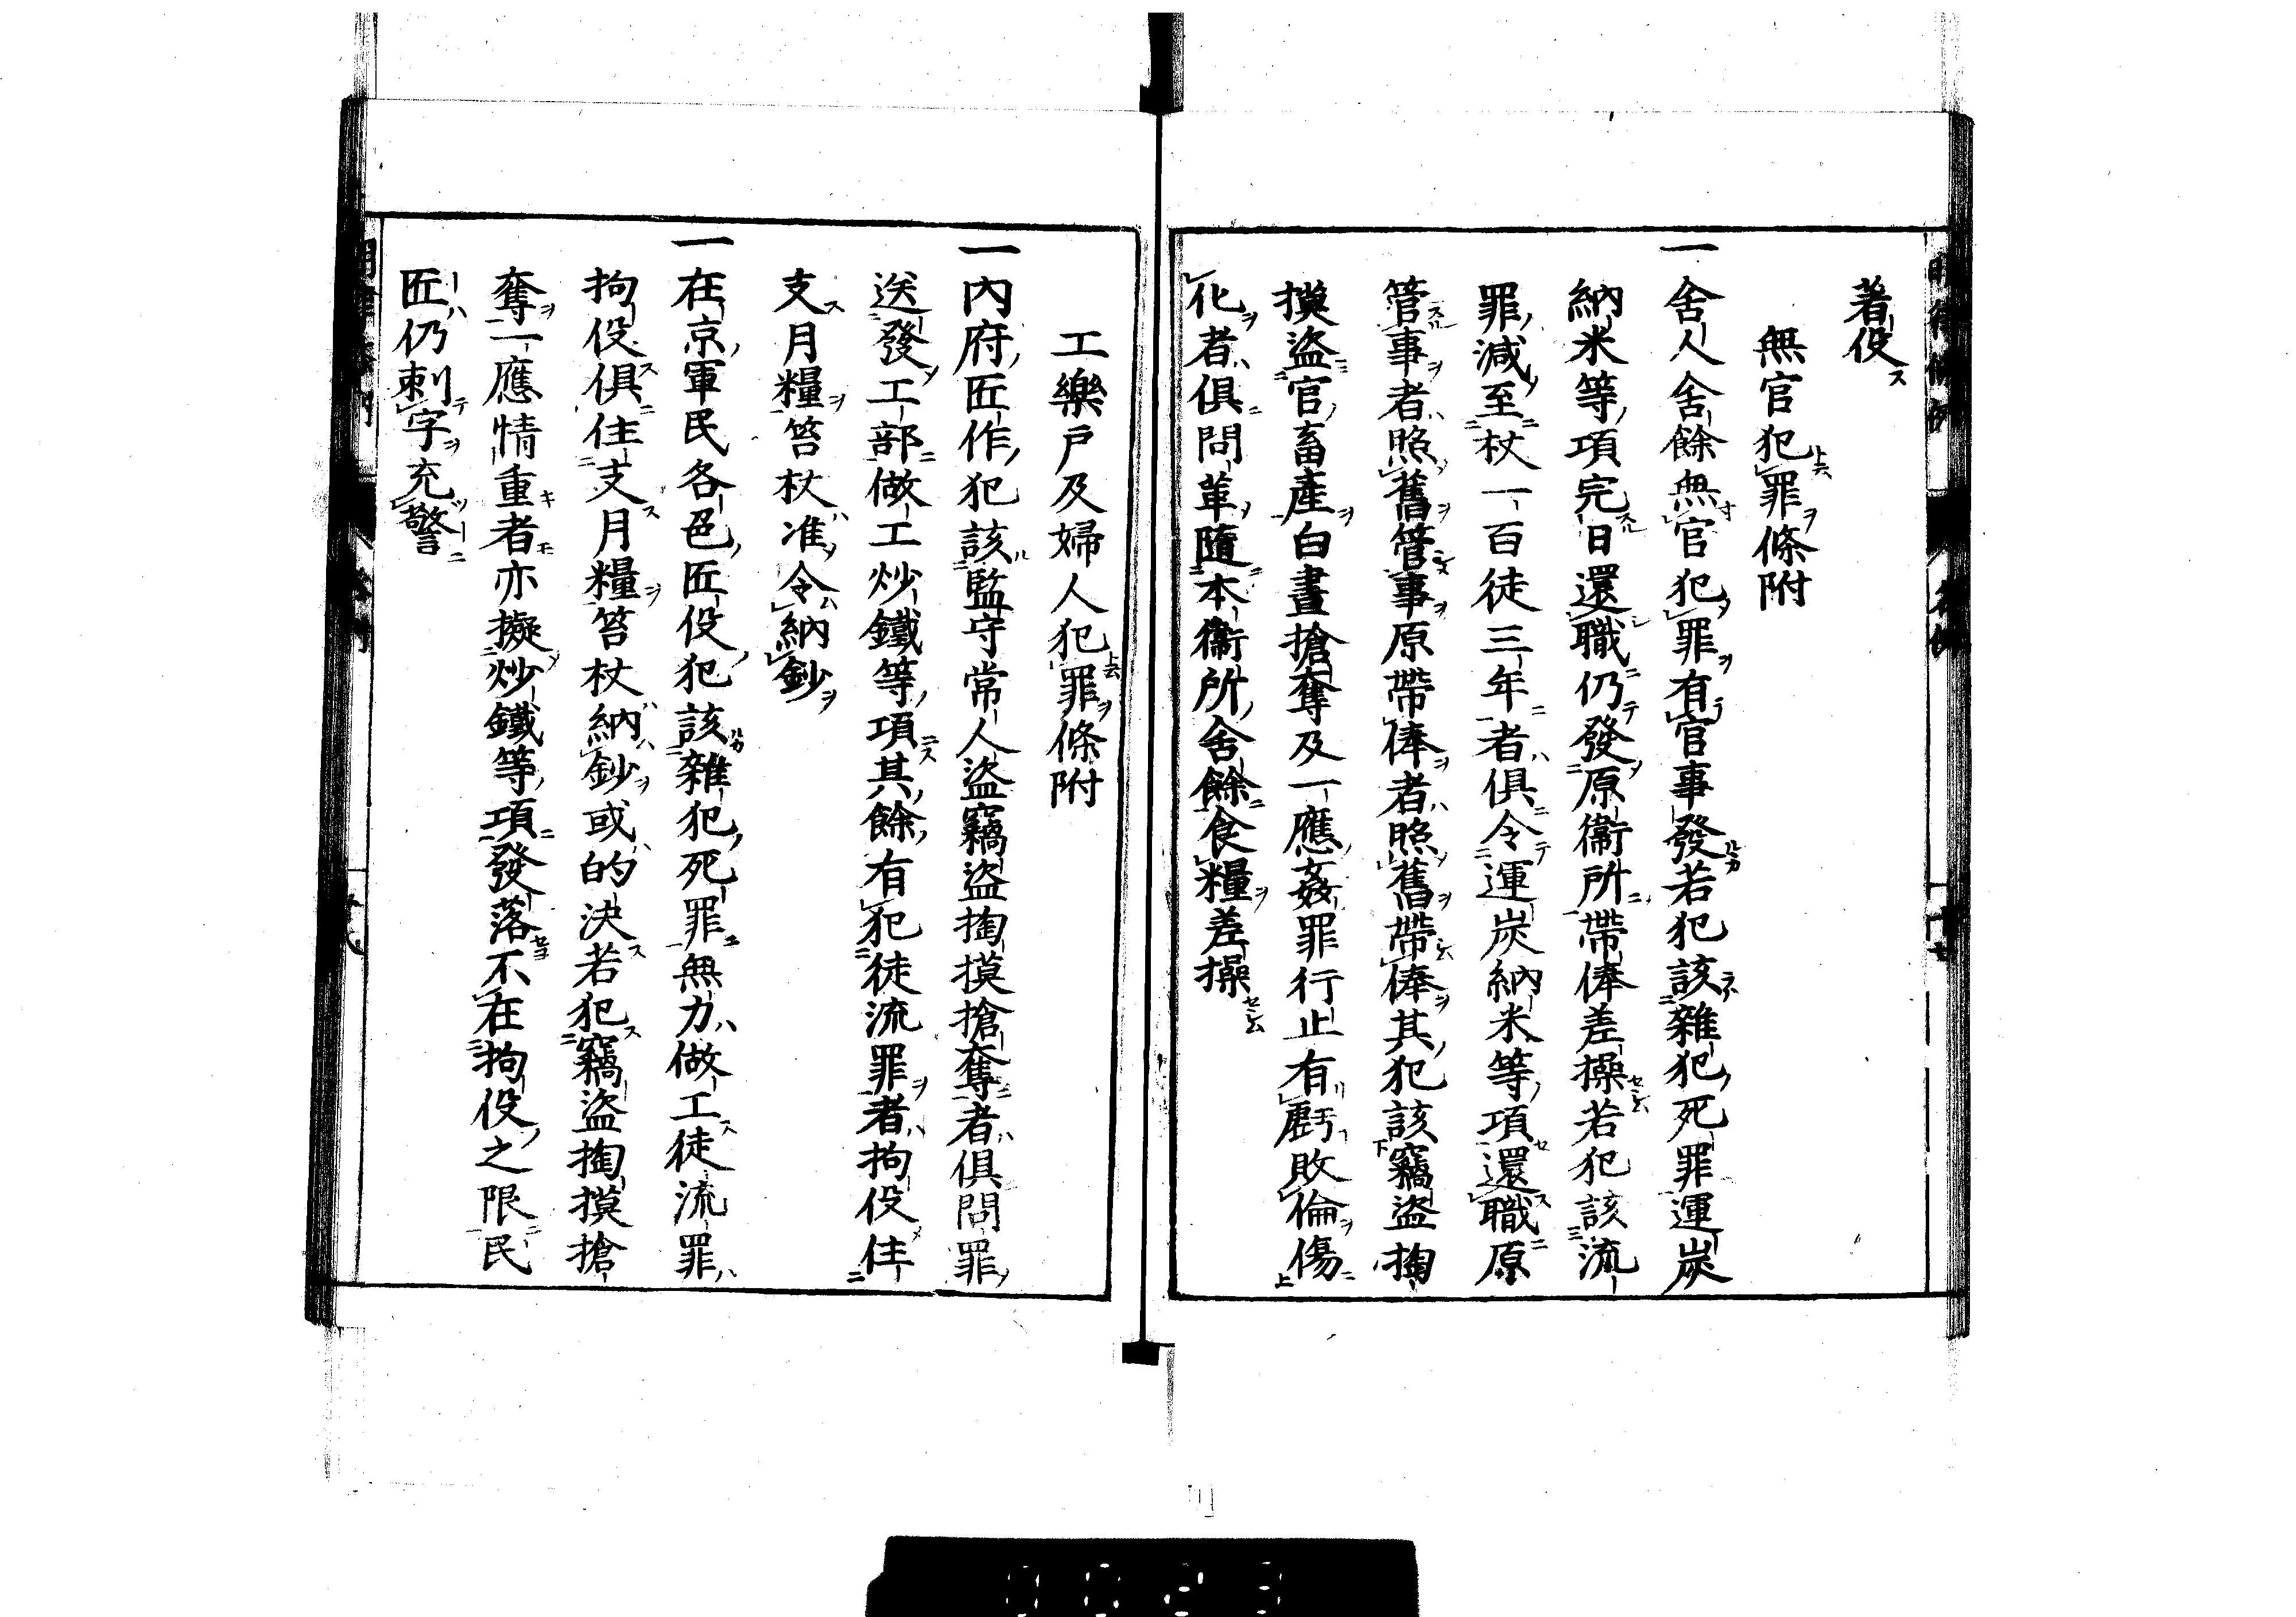 著役
無官犯罪條附
一舍人舍餘無官犯罪有官事發若犯該雜犯死罪運炭
納米等項完日還職仍發原衞所帶俸差操若犯該流
罪減至杖一百徒三年者俱令運炭納米等項還職原
管事者照舊管事原帶俸者照舊帶俸其犯該竊盜掏
摸盜官畜產白晝搶奪及一應姦罪行止有虧敗倫傷
化者俱問革隨本衞所舍餘食糧差操
工樂戶及婦人犯罪條附
一內府匠作犯該監守常人盜竊盜掏摸搶奪者俱問罪
送發工部做工炒鐵等項其餘有犯徒流罪者拘役住
支月糧笞杖准令納鈔
一在京軍民各色匠役犯該雜犯死罪無力做工徒流罪
拘役俱住支月糧笞杖納鈔或的決若犯竊盜掏摸搶
奪一應情重者亦擬炒鐵等項發落不在拘役之限民
匠仍刺字充警